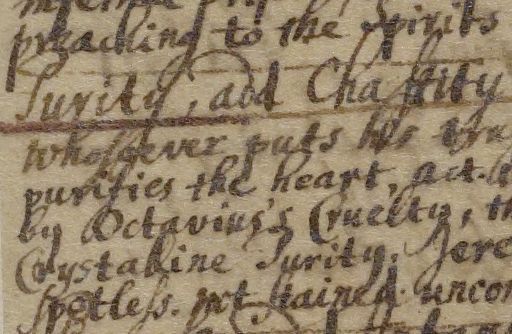 preaching to the Spirits
Purity, and Chastity
whosoever puts his tru
purifies the heart, act.
by Octavius's Cruelty, th
Crystalline Purity. Jere
Spotless. not stained. uncor